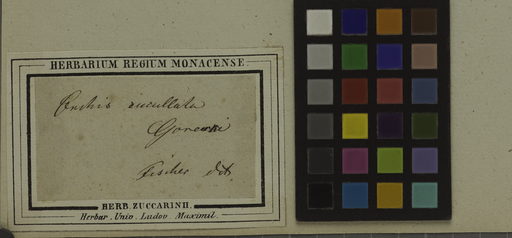 HERBARIUM REGIUM MONACENSE
Orchis cucullata
Fischer ddt.
HERB. ZUCCARINII.
Herbar. Univ. Ludov. Maximil.